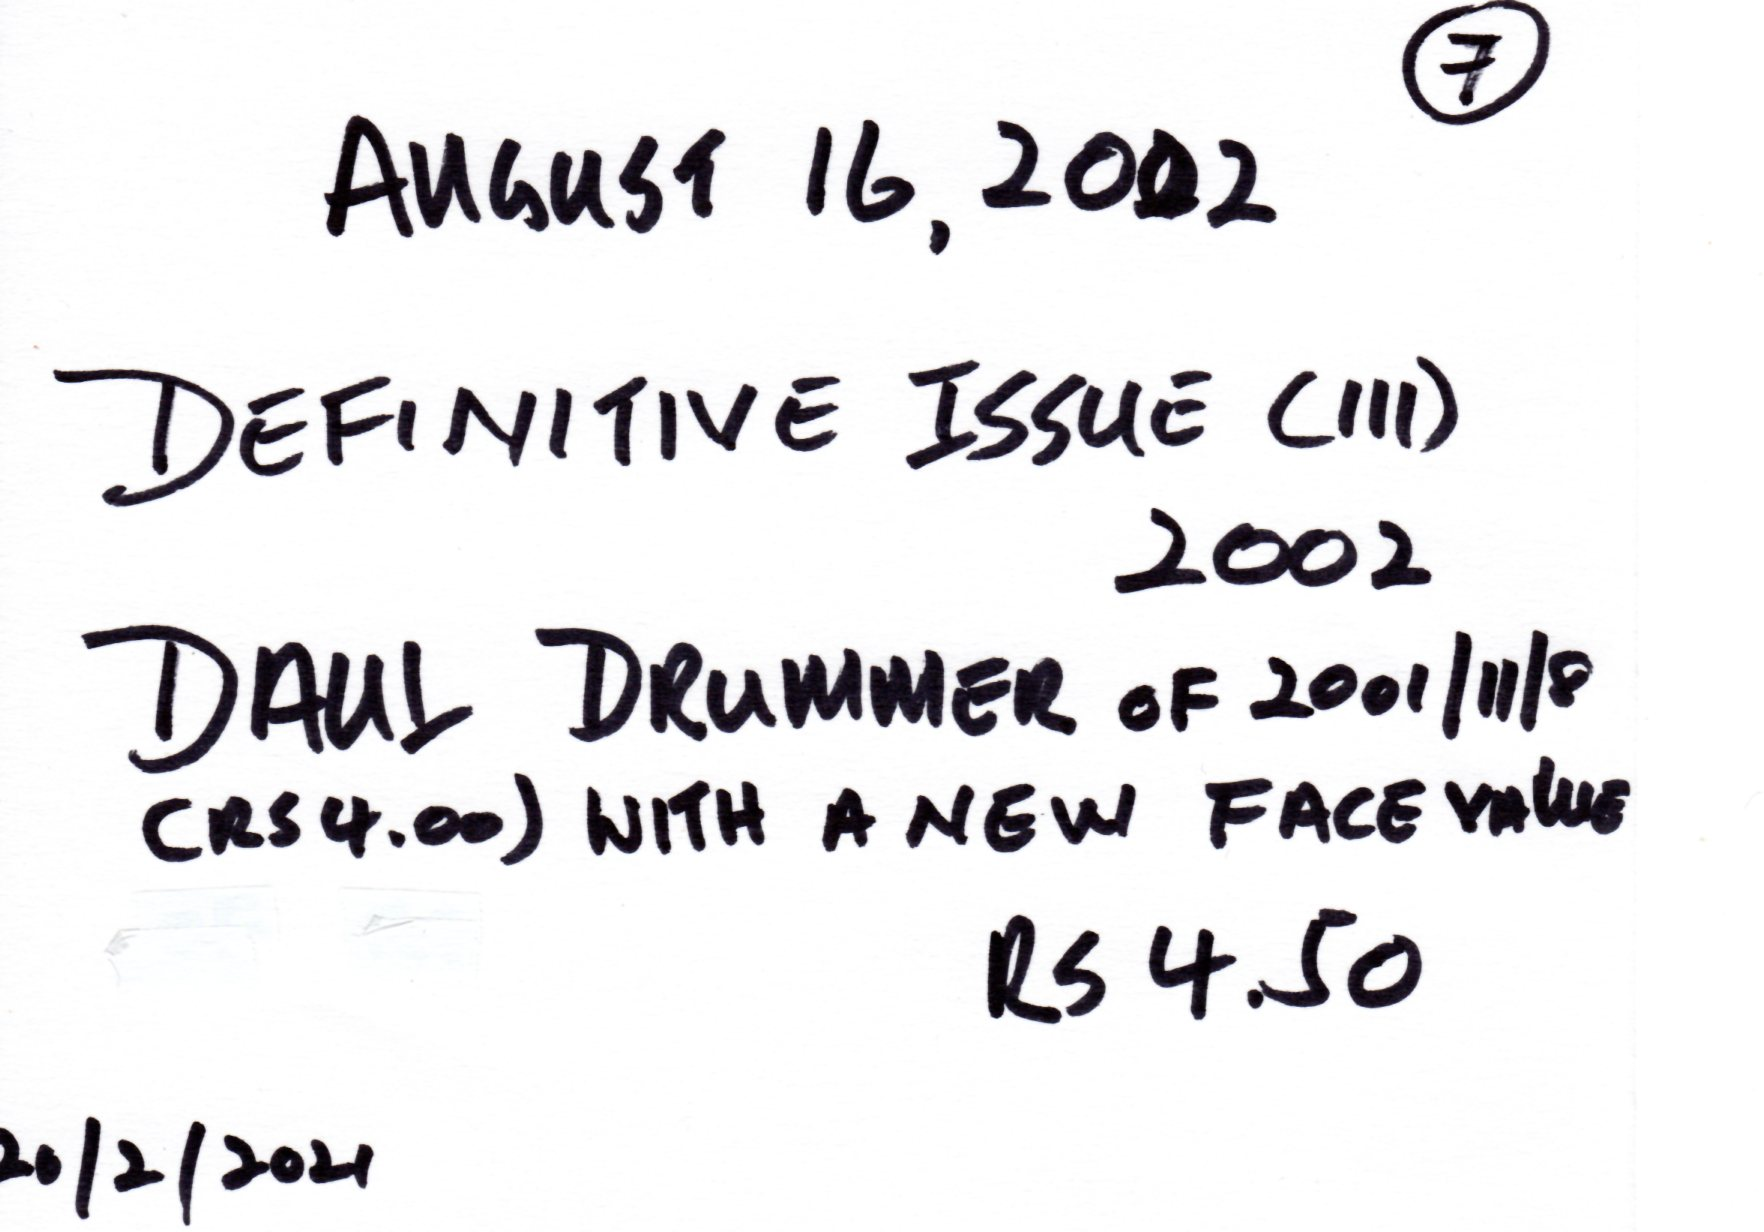 7
AUGUST 16, 2002
DEFINITIVE ISSUE (III)
2002
DAUL DRUMMER OF 2001/11/8
(RS 4.00) WITH A NEW FACE VALUE
RS 4.50
20/2/2021